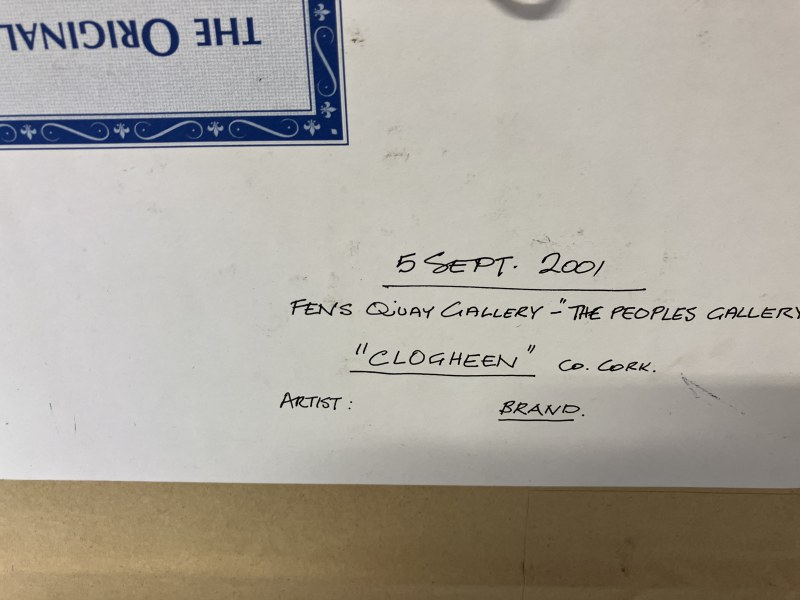 THE ORIGINAL
5 SEPT. 2001
FENS QUAY GALLERY - "THE PEOPLES GALLERY
"CLOGHEEN" CO. CORK.
ARTIST: BRAND.